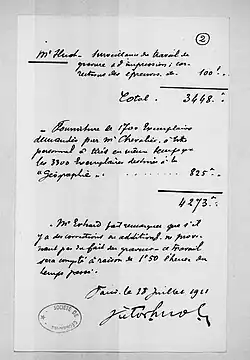 2
Mr Huot - Surveillance du travail de
gravure et d'impression; cor-
rections des épreuves, etc. 100f
Total. 3448.
- Fourniture de 1700 Exemplaires
demandés par Mr Chevalier,
personnel à tirés en même temps que
les 3300 Exemplaires destinés à la
"Géographie" . . . . . . . . . 825.
4273.
Mr Erhard fait remarquer que s'il
y a des corrections ou additions, ne prove-
nant pas du fait du graveur - ce travail
sera compté à raison de 1f50 l'heure de
temps passé.
Paris le 18 Juillet 1911
SOCIÉTÉ DE